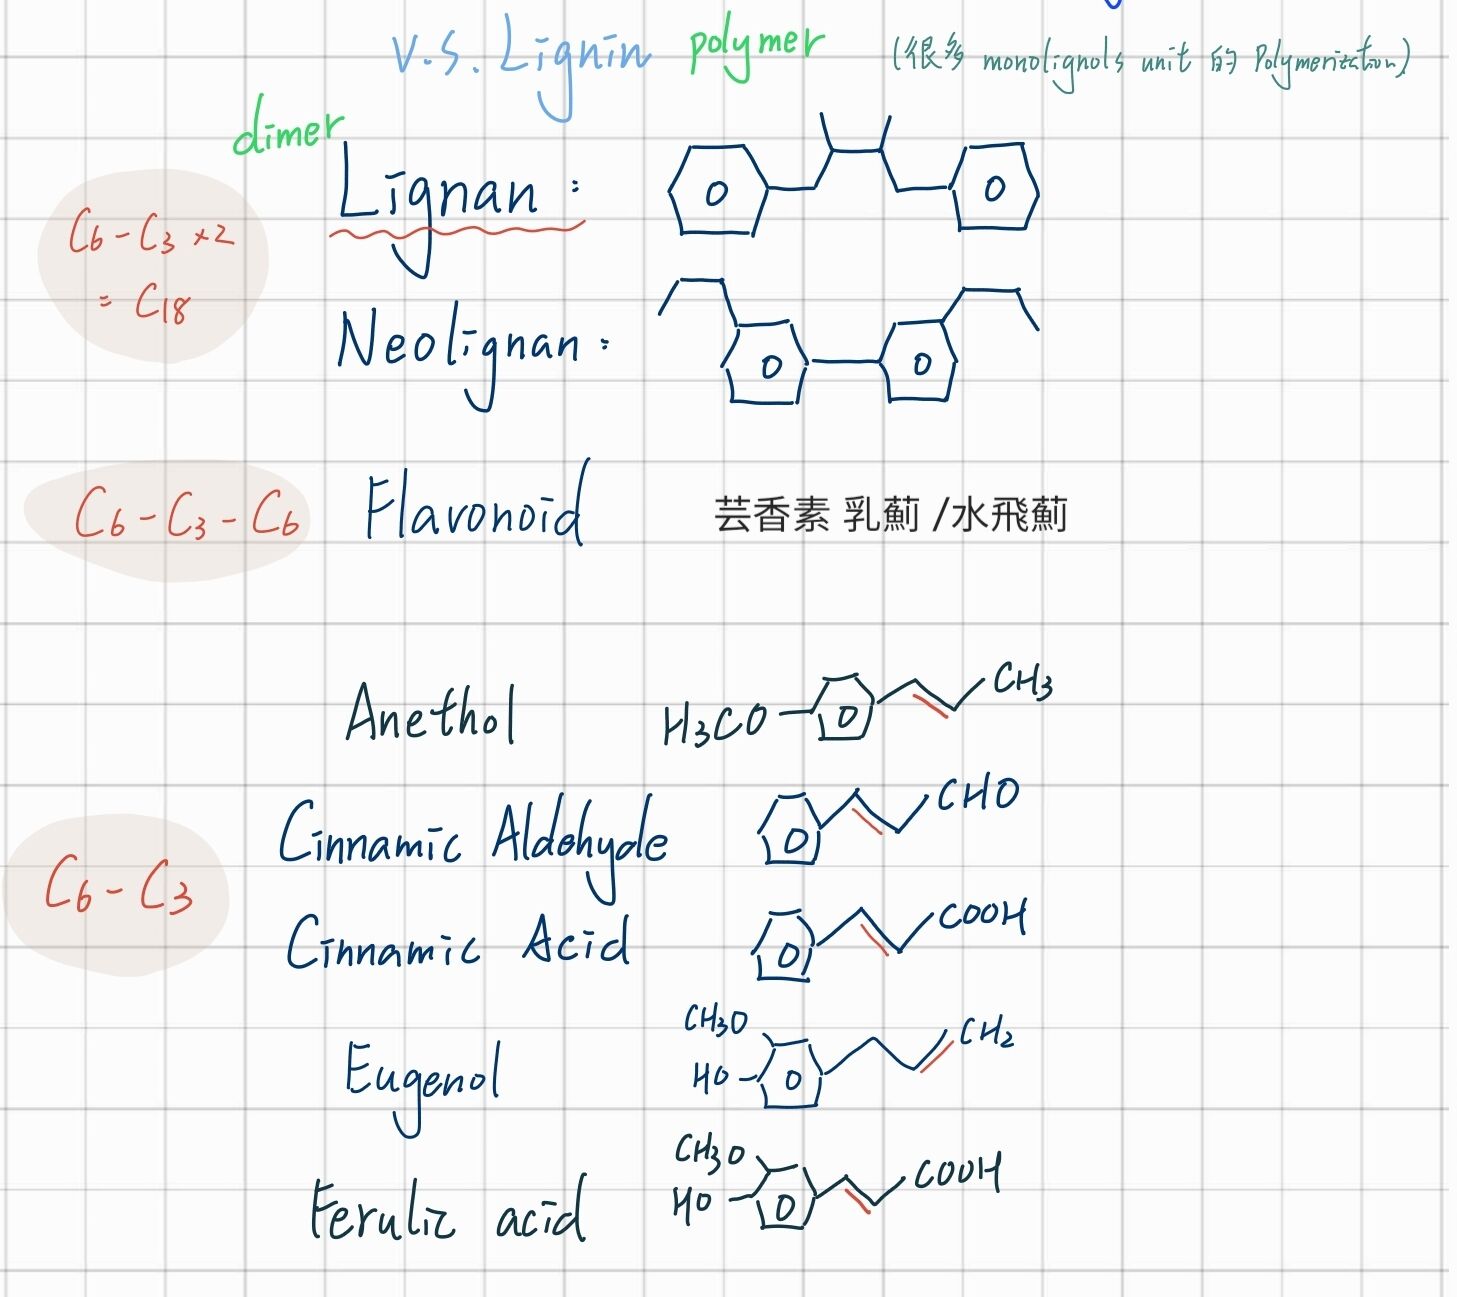 v.s. Lignin polymer (很多 monolignols unit 的 Polymerization)
dimer
Lignan :
C6-C3 ×2
= C18
Neolignan :
C6-C3-C6 Flavonoid 芸香素 乳薊 /水飛薊
Anethol H3CO CH3
Cinnamic Aldehyde CHO
C6-C3
Cinnamic Acid COOH
CH3O
Eugenol HO CH2
CH3O
Ferulic acid HO COOH